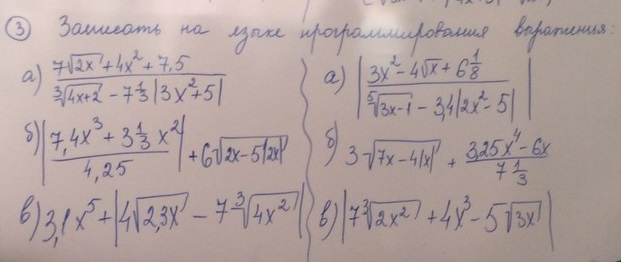 ③ Записать на языке программирования выражения:
а) (7√(2x) + 4x² + 7,5) / (∛(4x+2) - 7 1/3 |3x²+5|)
б) |(7,4x³ + 3 1/3 x²) / 4,25| + 6√(2x-5|2x|)
в) 3,1x⁵ + |4√(2,3x) - 7∛(4x²)|
а) |(3x² - 4√x + 6 1/8) / (⁵√(3x-1) - 3,4|2x²-5|)|
б) 3√(7x-4|x|) + (3,25x⁴ - 6x) / (7 1/3)
в) |7∛(2x²) + 4x³ - 5√(3x)|